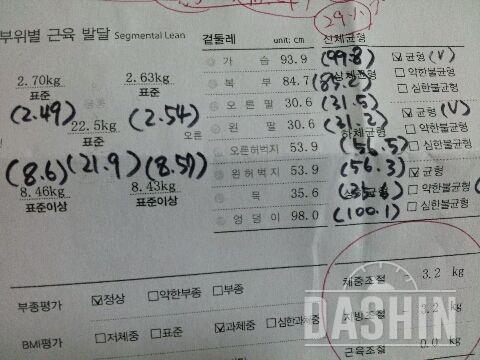 부위별 근육 발달 Segmental Lean
겉둘레 unit: cm
신체균형
2.70kg 2.63kg
표준 표준
(2.49) (2.54)
22.5kg
표준
(8.6) (21.9) (8.59)
8.46kg 8.43kg
표준이상 표준이상
가 슴 93.9 (99.8)
복 부 84.7 (85.2)
오른팔 30.6 (31.5)
왼 팔 30.6 (31.2)
오른허벅지 53.9 (56.5)
왼허벅지 53.9 (56.3)
목 35.6
엉덩이 98.0 (100.1)
☑균형 (V)
□약한불균형
□심한불균형
하체균형
☑균형 (V)
□약한불균형
□심한불균형
☑균형
□약한불균형
□심한불균형
부종평가 ☑정상 □약한부종 □부종
BMI평가 □저체중 □표준 ☑과체중 □심한과체중
체중조절 3.2 kg
지방조절 3.2 kg
근육조절 0.0 kg
DASHIN